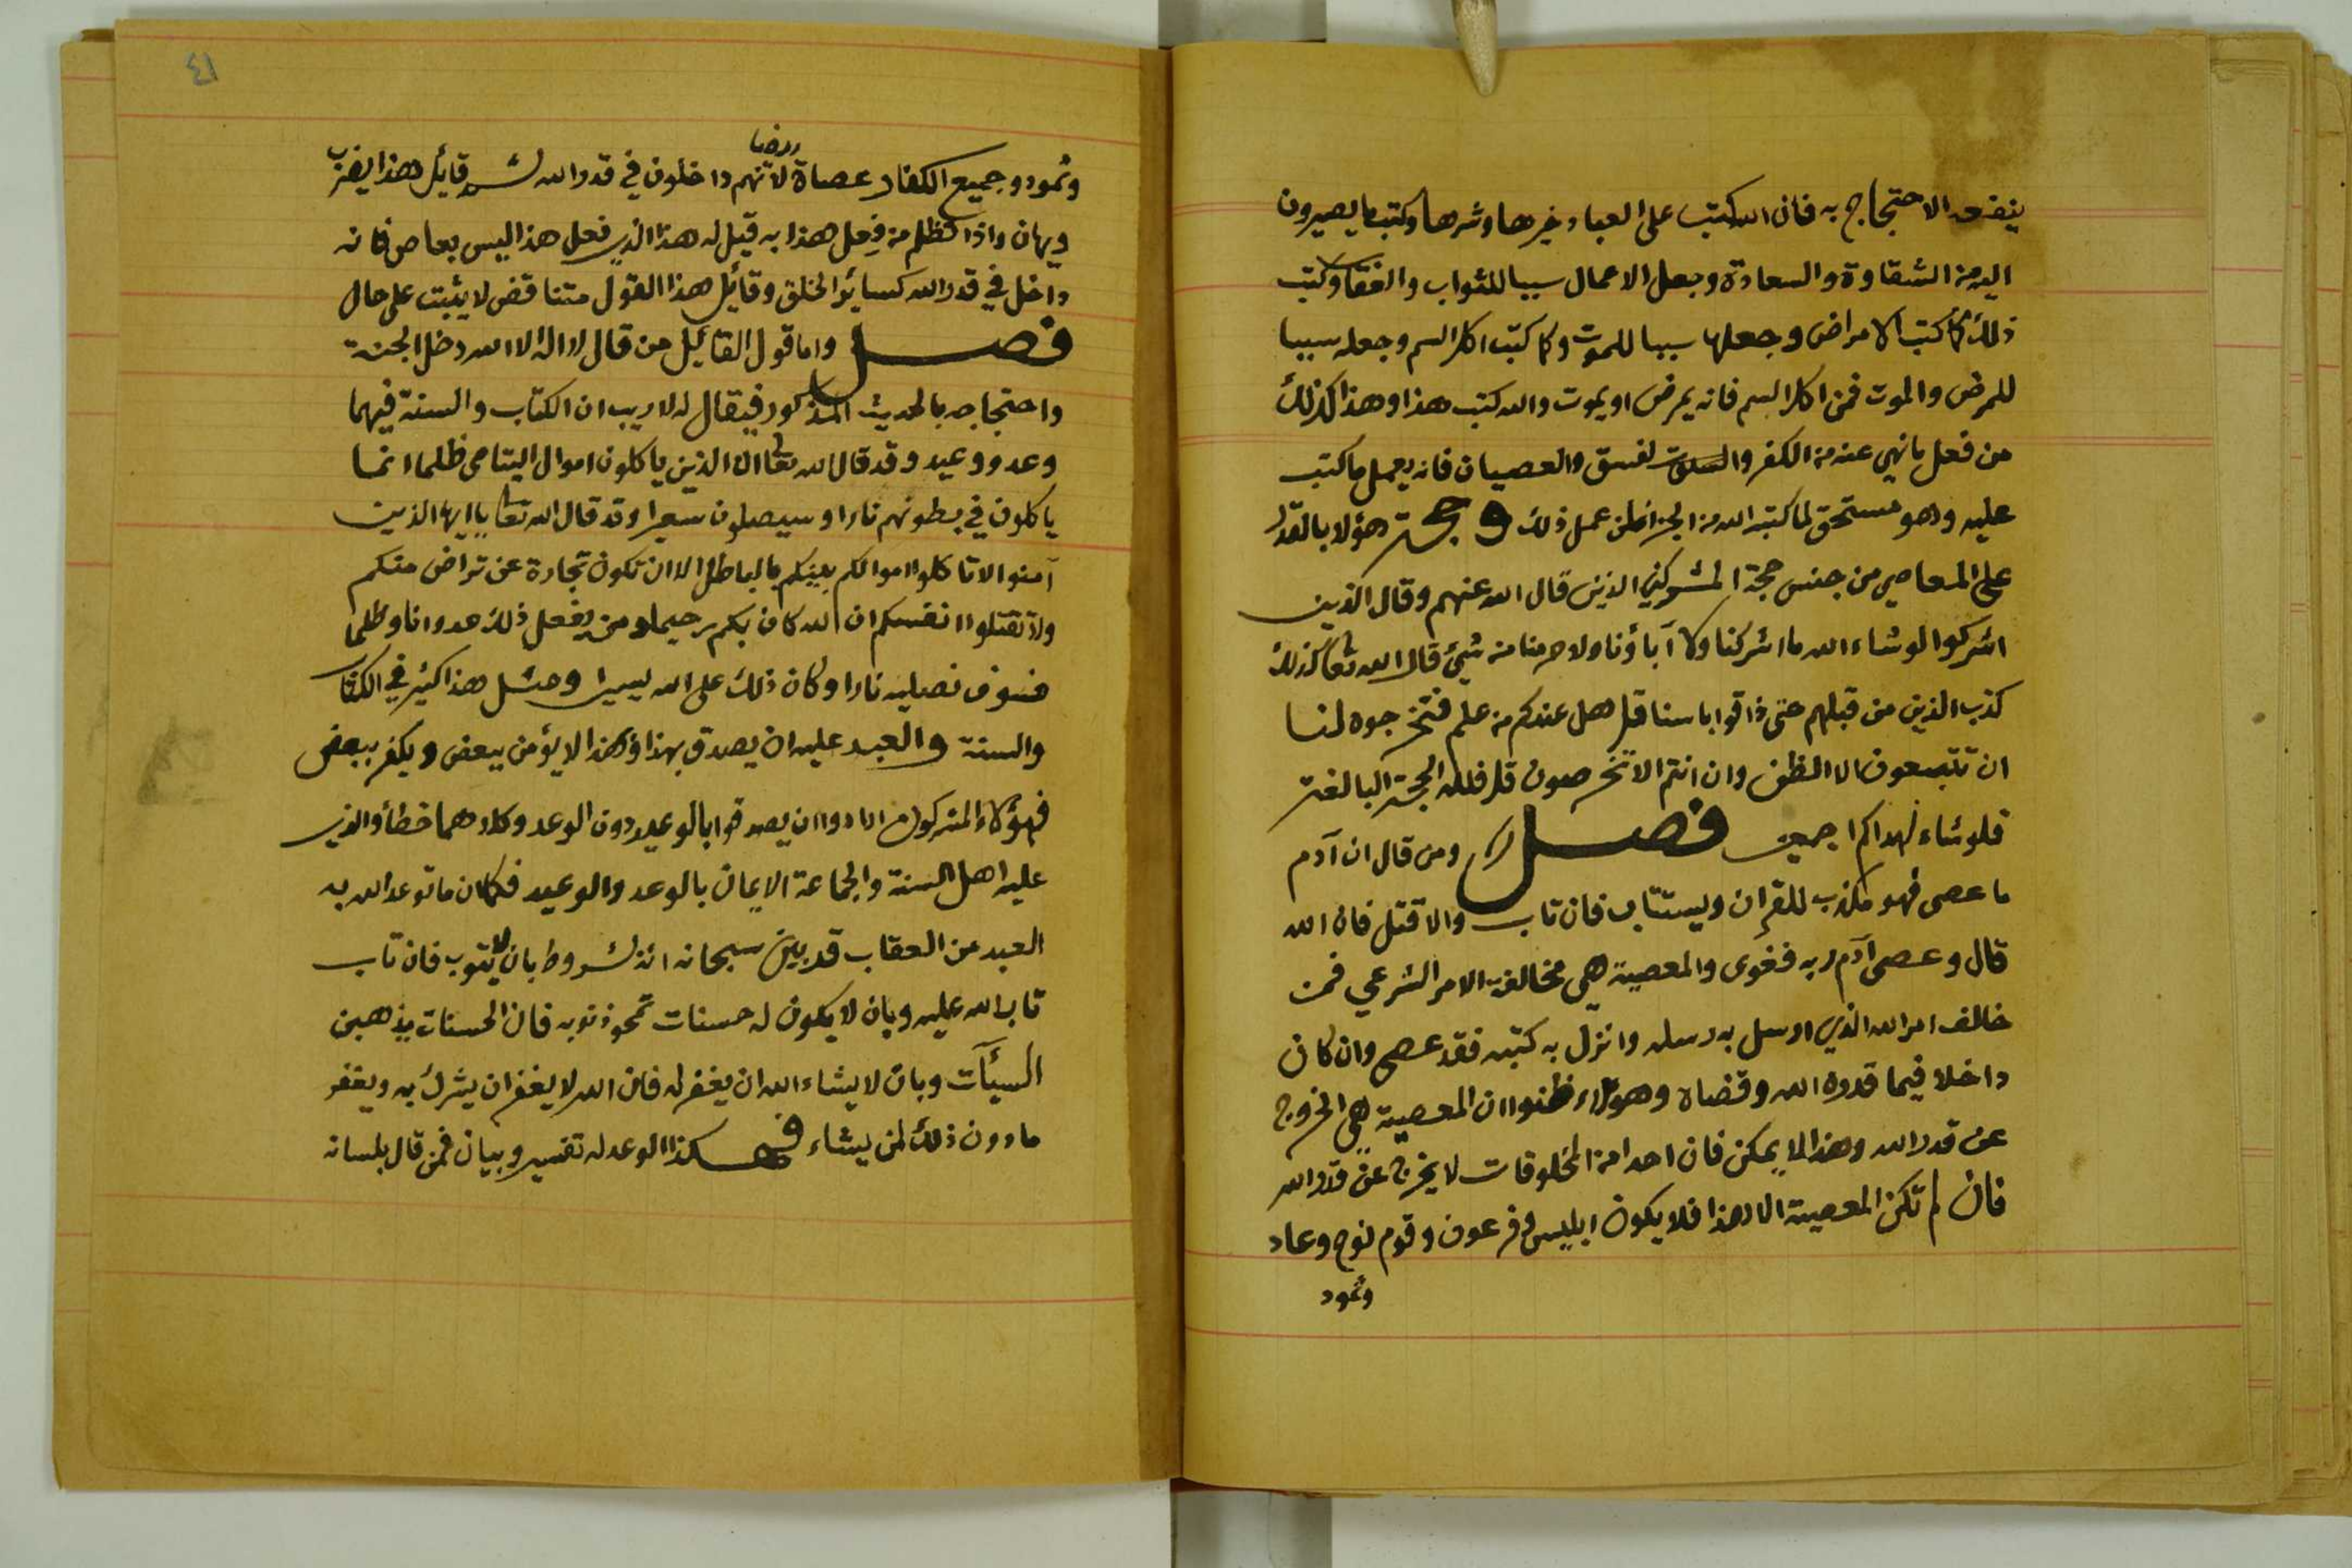 ينفعه الاحتجاج به فان الله كتب على العباد خيرها وشرها وكتب ما يصيرون
اليه من الشقاوة والسعادة وجعل الاعمال سببا للثواب والعقاب وكتب
ذلك كما كتب الامراض وجعلها سببا للموت وكما كتب اكل السم وجعله سببا
للمرض والموت فمن اكل السم فانه يمرض او يموت والله كتب هذا وهذا كذلك
من فعل ما نهي عنه من الكفر والفسق والعصيان فانه يعمل ما كتب
عليه وهو مستحق لما كتبه الله من الجزا لمن عمل ذلك وحجة هؤلا بالقدر
على المعاصي من جنس حجة المشركين الذين قال الله عنهم وقال الذين
اشركوا لو شاء الله ما اشركنا ولا آباؤنا ولا حرمنا من شيئ قال الله تعا كذلك
كذب الذين من قبلهم حتى ذاقوا باسنا قل هل عندكم من علم فتخرجوه لنا
ان تتبعون الا الظن وان انتم الا تخرصون قل فلله الحجة البالغة
فلو شاء لهداكم اجمعين فصل ومن قال ان آدم
ما عصى فهو مكذب للقران ويستتاب فان تاب والا قتل فان الله
قال وعصى آدم ربه فغوى والمعصية هي مخالفة الامر الشرعي فمن
خالف امر الله الذي ارسل به رسله وانزل به كتبه فقد عصى وان كان
داخلا فيما قدره الله وقضاه وهؤلاء ظنوا ان المعصية هي الخروج
عن قدر الله وهذا لا يمكن فان احدا من المخلوقات لا يخرج عن قدر الله
فان لم تكن المعصية الا هذا فلا يكون ابليس وفرعون وقوم نوح وعاد
وثمود
٤١
وثمود وجميع الكفار عصاة لانهم داخلون في قدر الله ثم قايل هذا يضرب
ويهان واذا تظلم من فعل هذا به قيل له هذا الذي فعل هذا ليس بعاص فانه
داخل في قدر الله كسائر الخلق وقائل هذا القول متناقض لا يثبت على حال
فصل واما قول القائيل من قال لا اله الا الله دخل الجنة
واحتجاجه بالحديث المذكور فيقال له لا ريب ان الكتاب والسنة فيهما
وعد ووعيد وقد قال الله تعا ان الذين ياكلون اموال اليتامى ظلما انما
ياكلون في بطونهم نارا وسيصلون سعيرا وقد قال الله تعا يا ايها الذين
آمنوا لا تاكلوا اموالكم بينكم بالباطل الا ان تكون تجارة عن تراض منكم
ولا تقتلوا انفسكم ان الله كان بكم رحيما ومن يفعل ذلك عدوانا وظلما
فسوف نصليه نارا وكان ذلك على الله يسيرا ومثل هذا كثير في الكتاب
والسنة والعبد عليه ان يصدق بهذا وهذا لا يؤمن ببعض ويكفر ببعض
فهؤلاء المشركون ارادوا ان يصدقوا بالوعيد دون الوعد وكلاهما خطأ والذي
عليه اهل السنة والجماعة الايمان بالوعد والوعيد فكما ان ما توعد الله به
العبد من العقاب قد بين سبحانه انه بشروط بان لا يتوب فان تاب
تاب الله عليه وبان لا يكون له حسنات تمحو ذنوبه فان الحسنات يذهبن
السيآت وبان لا يشاء الله ان يغفر له فان الله لا يغفر ان يشرك به ويغفر
ما دون ذلك لمن يشاء فهكذا الوعد له تفسير وبيان فمن قال بلسانه